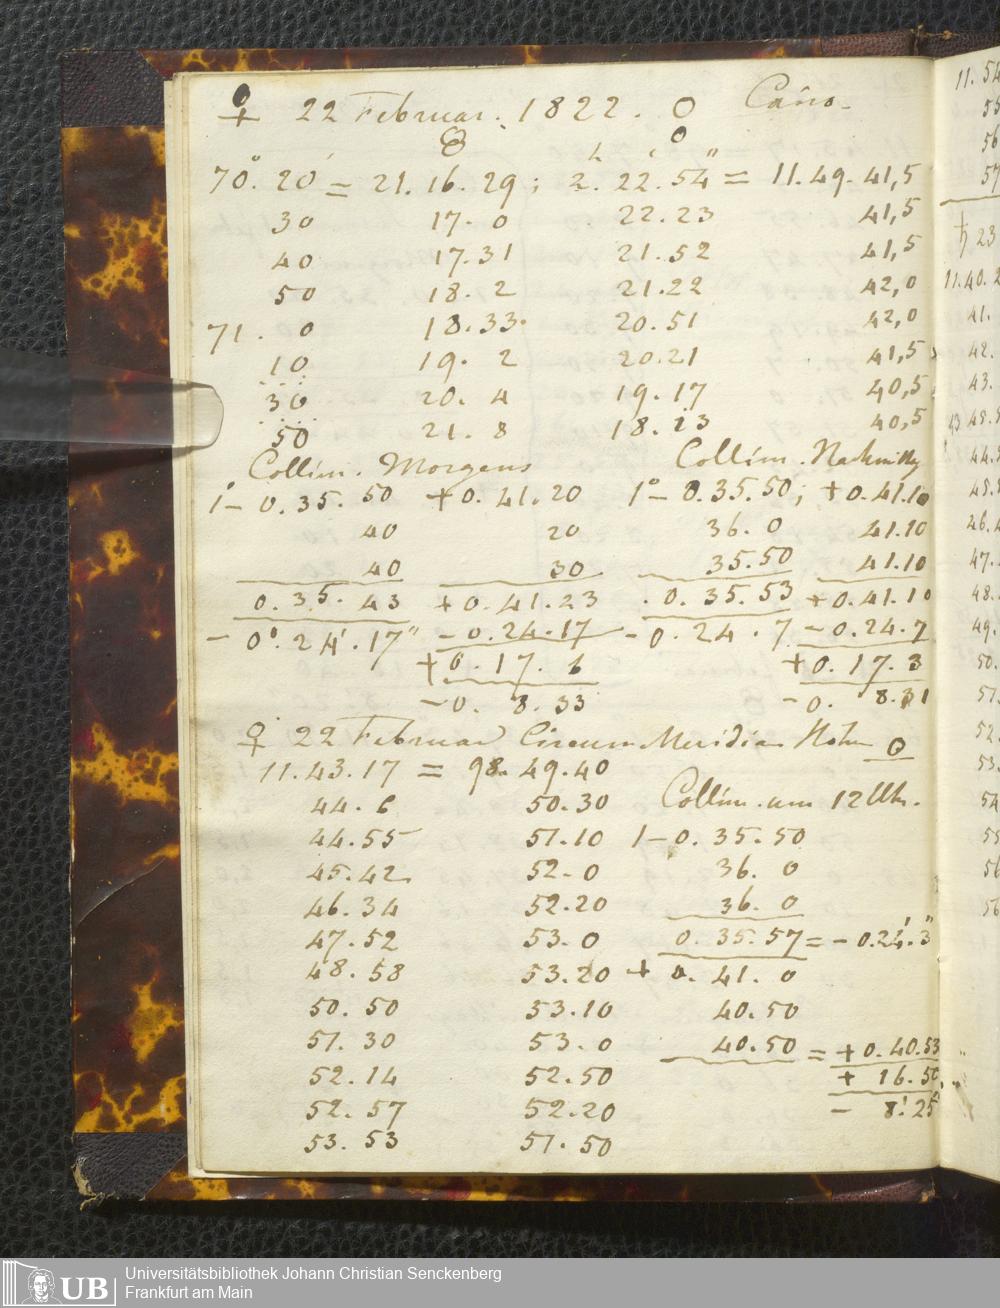 ♀ 22 Februar. 1822. O Cairo.
70°. 20' = 21. 16. 29; 2. 22. 54" = 11. 49. 41,5
30 17. 0 22. 23 41,5
40 17. 31 21. 52 41,5
50 18. 2 21. 22 42,0
71. 0 18. 33. 20. 51 42,0
10 19. 2 20. 21 41,5
30 20. 4 19. 17 40,5
50 21. 8 18. 13 40,5
Collim. Morgens Collim. Nachmittg
1° - 0. 35. 50 + 0. 41. 20 1° - 0. 35. 50; + 0. 41. 10
40 20 36. 0 41. 10
40 30 35. 50 41. 10
0. 35. 43 + 0. 41. 23 0. 35. 53 + 0. 41. 10
- 0°. 24'. 17" - 0. 24. 17 - 0. 24. 7 - 0. 24. 7
+ 0. 17. 6 + 0. 17. 3
- 0. 8. 33 - 0. 8. 31
♀ 22 Februar Circum Meridian Höhn O
11. 43. 17 = 98. 49. 40
44. 6 50. 30 Collim. um 12 Uhr.
44. 55 51. 10 1 - 0. 35. 50
45. 42 52. 0 36. 0
46. 34 52. 20 36. 0
47. 52 53. 0 0. 35. 57 = - 0. 24'. 3"
48. 58 53. 20 + 0. 41. 0
50. 50 53. 10 40. 50
51. 30 53. 0 40. 50 = + 0. 40. 53
52. 14 52. 50 + 16. 50
52. 57 52. 20 - 8.' 25"
53. 53 51. 50
11. 54
55
56
57
♄ 23
11. 40. 2
41.
42.
43.
44.
47.
48.
49.
50.
51.
52.
53.
54
55
56
56
UB Universitätsbibliothek Johann Christian Senckenberg
Frankfurt am Main